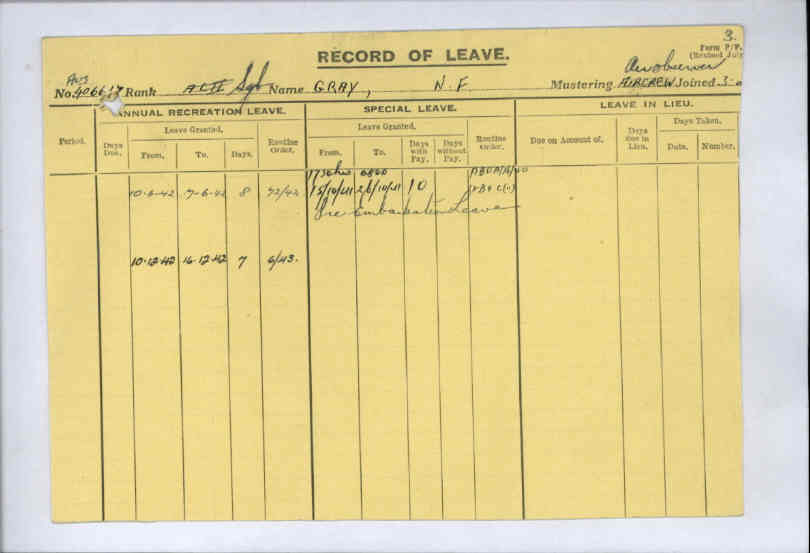 3.
Form P/P.
(Revised July
RECORD OF LEAVE.
Aus Air Observer
No. 406617 Rank AC II Sgt Name GRAY, N. F. Mustering AIRCREW Joined 3-
ANNUAL RECREATION LEAVE. SPECIAL LEAVE. LEAVE IN LIEU.
Period. Days Due. Leave Granted. Routine Order. Leave Granted. Routine Order. Due on Account of. Days due in Lieu. Days Taken.
From. To. Days. From. To. Days with Pay. Days without Pay. Date. Number.
1730hrs 0800
10-6-42 7-6-42 8 72/42 15/10/41 26/10/41 10
Pre Embarkation Leave
10-12-42 16-12-42 7 6/43.